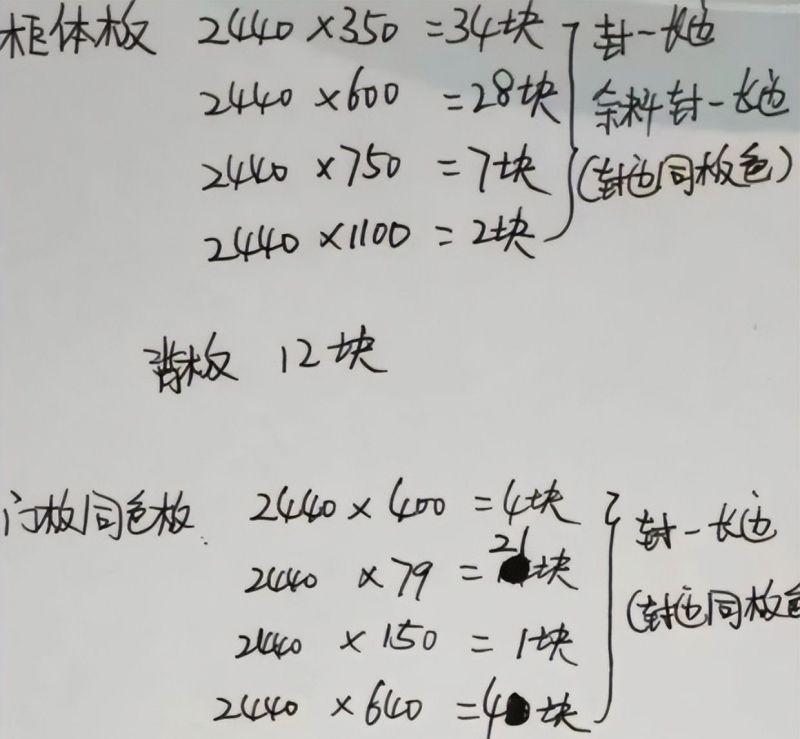 柜体板 2440×350=34块 封一长边
2440×600=28块 余料封一长边
2440×750=7块 (封边同板色)
2440×1100=2块
背板 12块
门板同色板 2440×400=4块 封一长边
2440×79=21块 (封边同板色
2440×150=1块
2440×640=4块